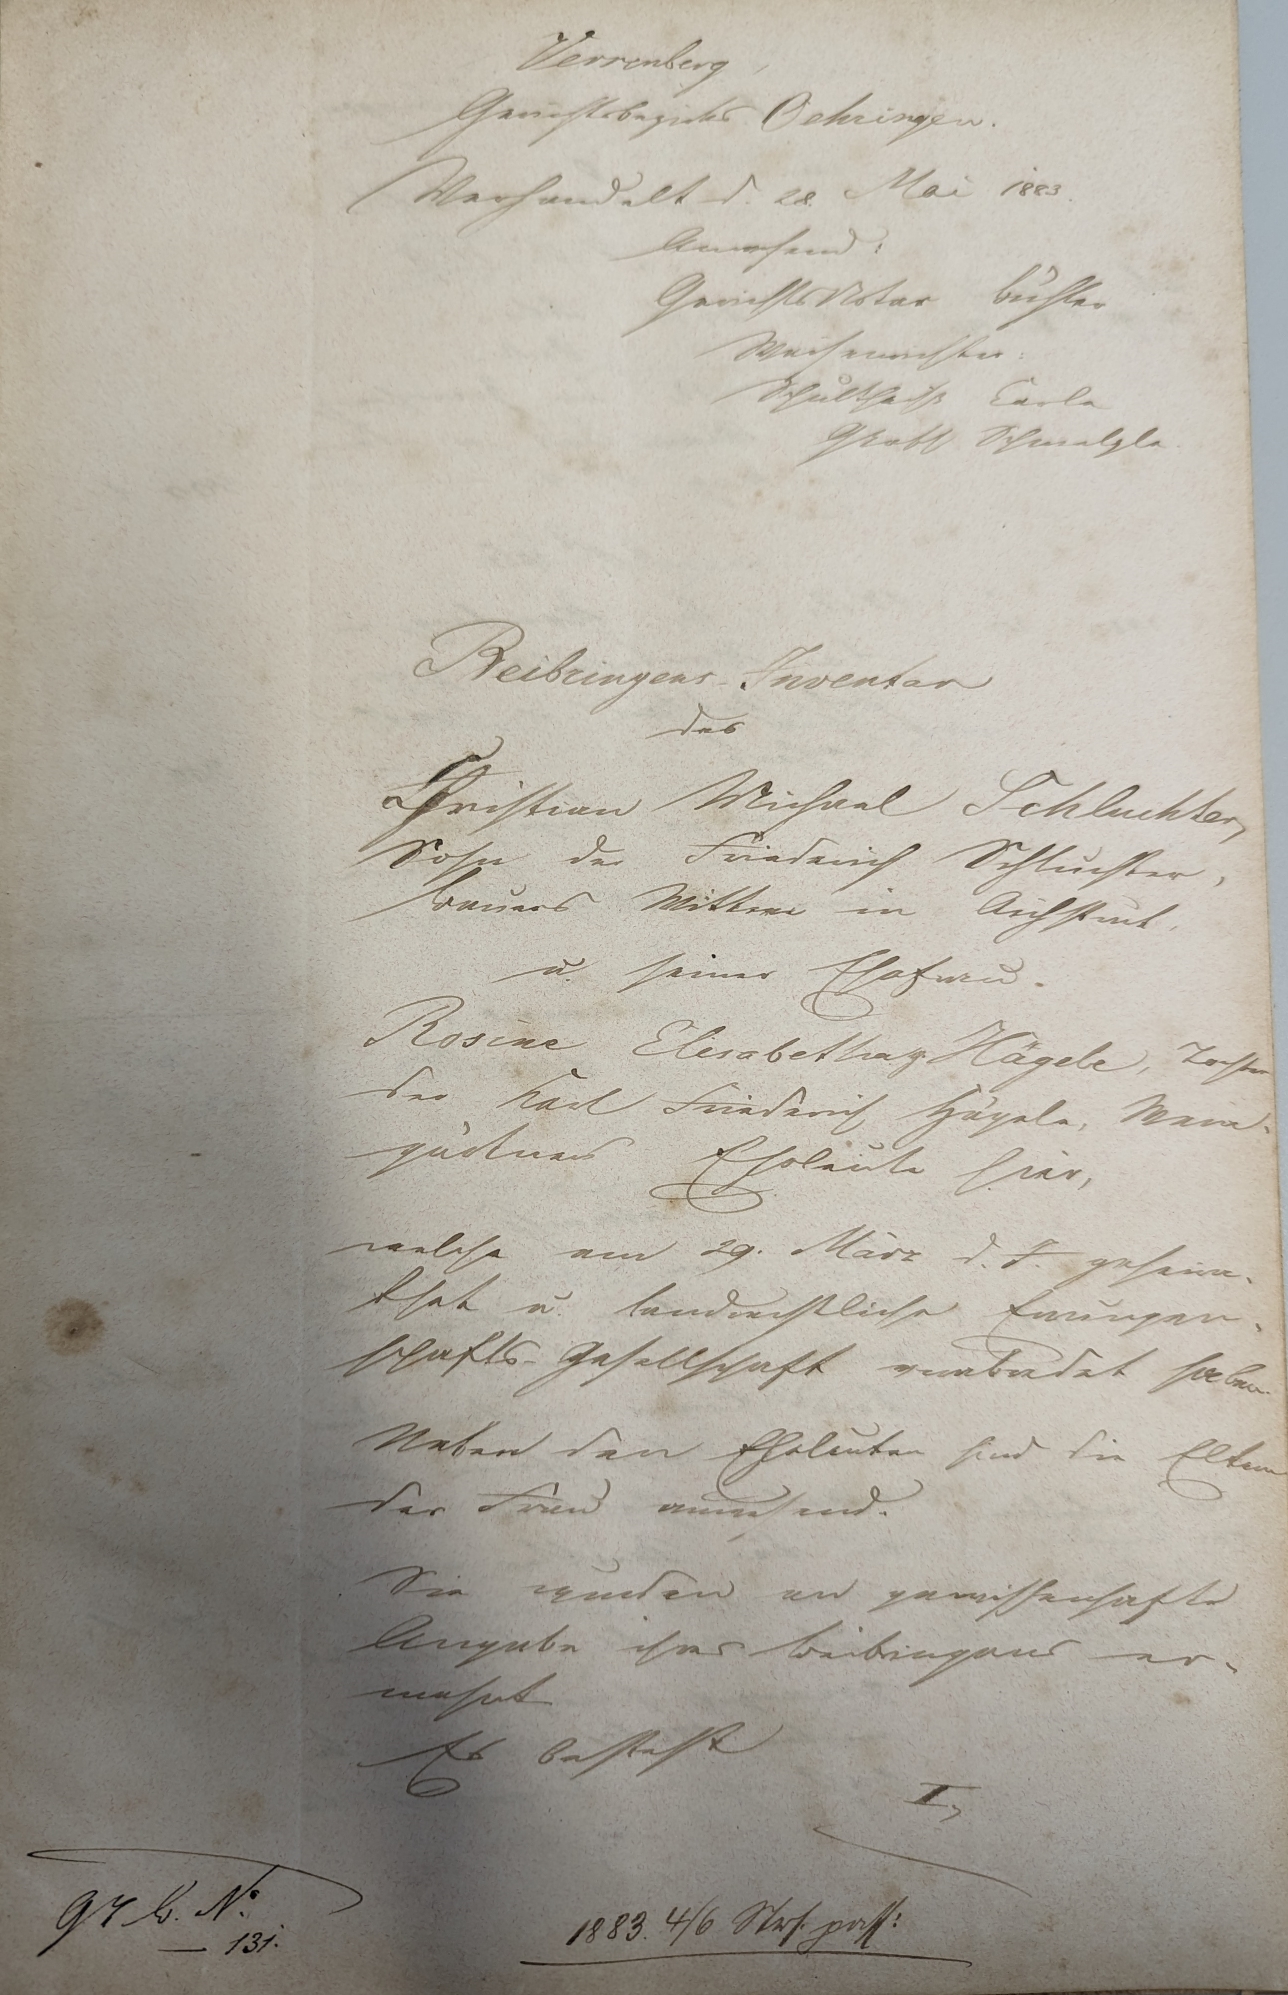 Verrenberg,
Gerichtsbezirks Oehringen.
Verhandelt d. 28. Mai 1883.
Anwesend:
Gerichts Notar Bühler
Waisenrichter:
Schultheiß Carle
GRath Schmelzle
Beibringens-Inventar
des
Christian Michael Schluchter,
Sohn der Friederich Schluchter,
Bauers Wittwe in
u. seiner Ehefrau.
Rosine Elisabetha Hägele, Tochter
der Karl Friederich Hägele, Wein-
gärtners Eheleute hier,
welche am 29. März d. J. geheira-
thet u. landrechtliche Errungen-
schafts-Gesellschaft verabredet haben.
Neben den Eheleuten sind die Eltern
der Frau anwesend.
Sie wurden an gewissenhafte
Angabe ihres Beibringens er-
mahnt
Es besteht
I,
B. No.
131.
1883. 4/6